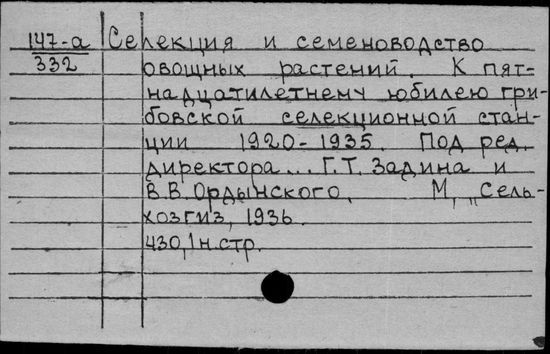 147-а Селекция и семеноводство
332 овощных растений. К пят-
надцатилетнему юбилею гри-
бовской селекционной стан-
ции 1920-1935. Под ред.
директора... Г.Т. Задина и
В.В. Ордынского, М, „Сель-
хозгиз, 1936.
430,1н.стр.